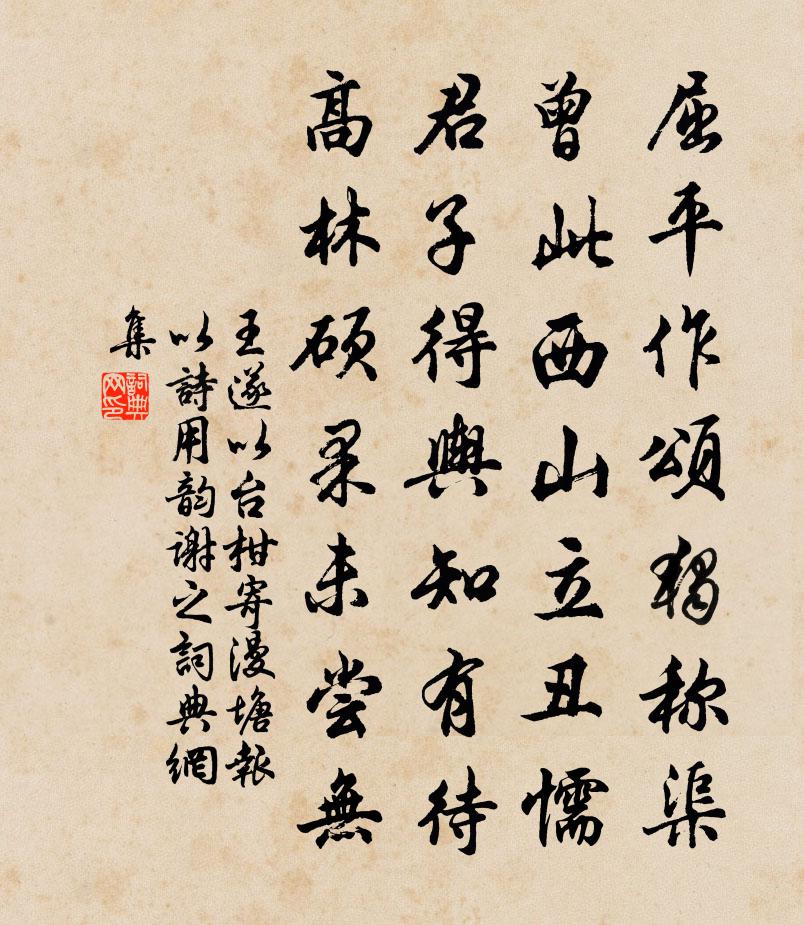 屈平作頌獨称渠
曾此西山立丑懦
君子得輿知有待
高林碩果未尝無
王遂以台柑寄漫塘報
以詩用韵謝之詞典網
集
詞典
网印